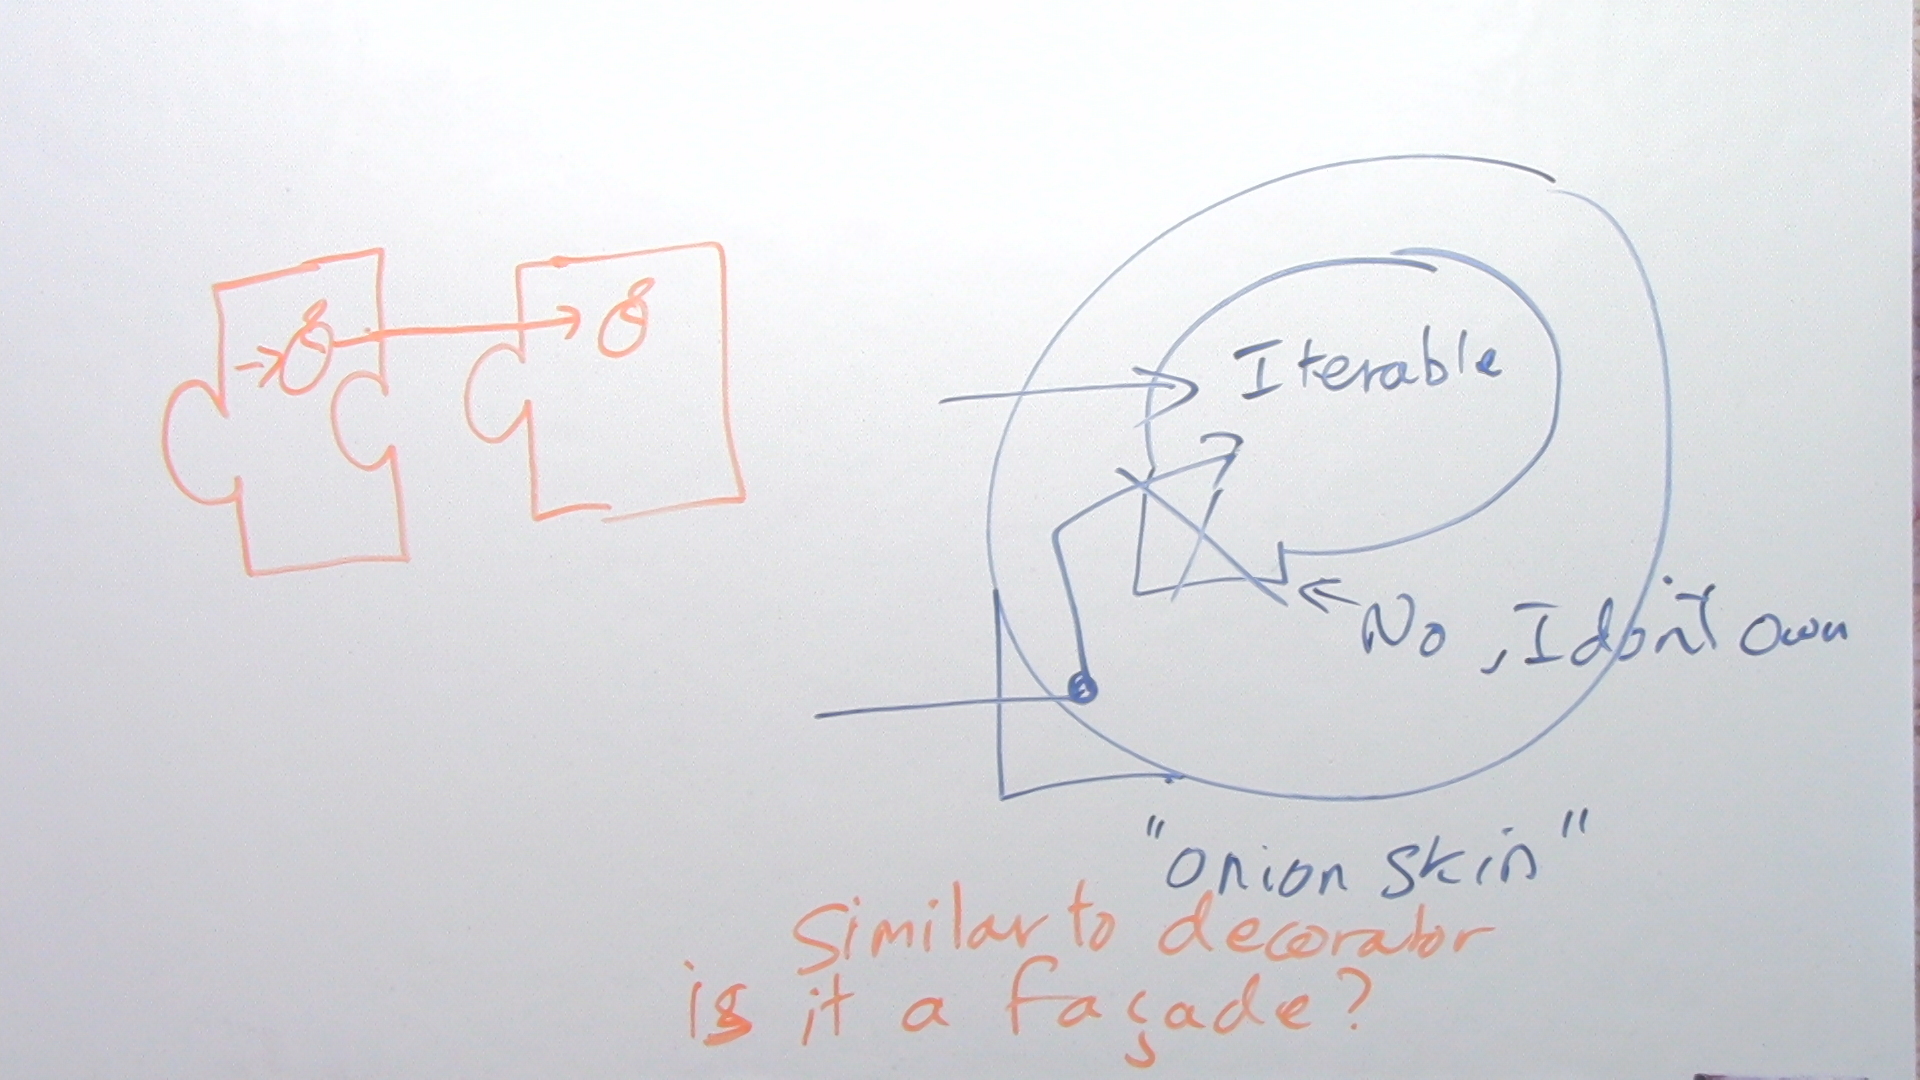 Iterable
No, I don't own
"onion skin"
Similar to decorator
is it a façade?